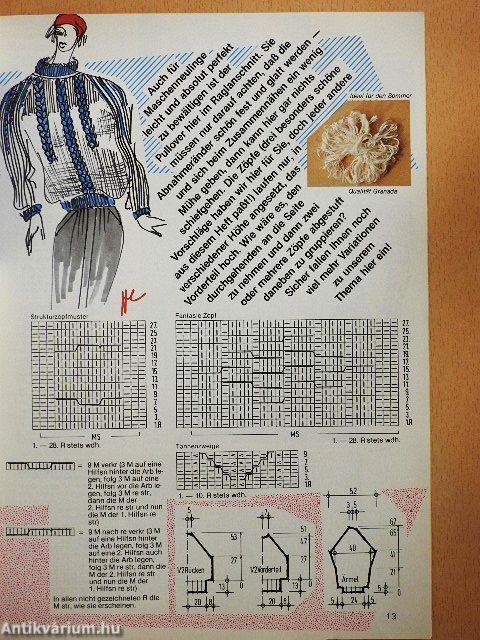 Auch für
Maschenneulinge
leicht und absolut perfekt
zu bewältigen ist der
Pullover hier im Raglanschnitt. Sie
müssen nur darauf achten, daß die
Abnahmeränder schön fest und glatt werden —
und sich beim Zusammennähen ein wenig
Mühe geben, dann kann hier gar nichts
schiefgehen. Die Zöpfe (drei besonders schöne
Vorschläge haben wir hier für Sie, doch jeder andere
aus diesem Heft paßt) laufen nur, in
verschiedener Höhe angesetzt, das
Vorderteil hoch. Wie wäre es, den
durchgehenden an die Seite
zu nehmen und dann zwei
oder mehrere Zöpfe abgestuft
daneben zu gruppieren?
Sicher fallen Ihnen noch
viel mehr Variationen
zu unserem
Thema hier ein!
Ideal für den Sommer
Qualität Granada
Strukturzopfmuster
27.
25.
23.
21.
19.
17.
15.
13.
11.
9.
7.
5.
3.
1.R
MS
1. — 28. R stets wdh.
Fantasie Zopf
27.
25.
23.
21.
19.
17.
15.
13.
11.
9.
7.
5.
3.
1.R
MS
1. — 28. R stets wdh.
Tannenzweige
9.
7.
5.
3.
1.R
1. — 10. R stets wdh.
= 9 M verkr (3 M auf eine
Hilfsn hinter die Arb le-
gen, folg 3 M auf eine
2. Hilfsn vor die Arb le-
gen, folg 3 M re str,
dann die M der
2. Hilfsn re str und nun
die M der 1. Hilfsn re
str)
= 9 M nach re verkr (3 M
auf eine Hilfsn hinter
die Arb legen, folg 3 M
auf eine 2. Hilfsn auch
hinter die Arb legen,
folg 3 M re str, dann die
M der 2. Hilfsn re str
und nun die M der
1. Hilfsn re str)
In allen nicht gezeichneten R die
M str, wie sie erscheinen.
5
53
27
13
1/2 Rücken
20
8
7
51
47
27
13
1/2 Vorderteil
20
8
52
3,5
67
65
40
41
21
Ärmel
5
24
5
13
Antikvárium.hu